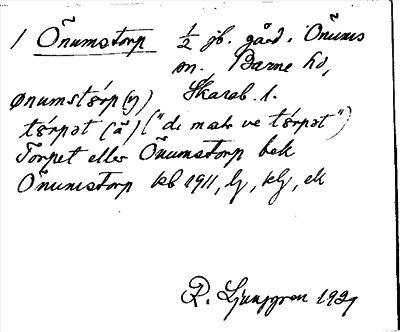 1 Önumstorp 1/2 jb. gård. i Önums
sn. Barne hd,
Skarab. l.
ønumstɷrp (y)
tɷrpət (ä) ("di mate ve tɷrpət")
Torpet eller Önumstorp bek
Önumstorp kb 1911, lj, klj, ek
R. Ljunggren 1927